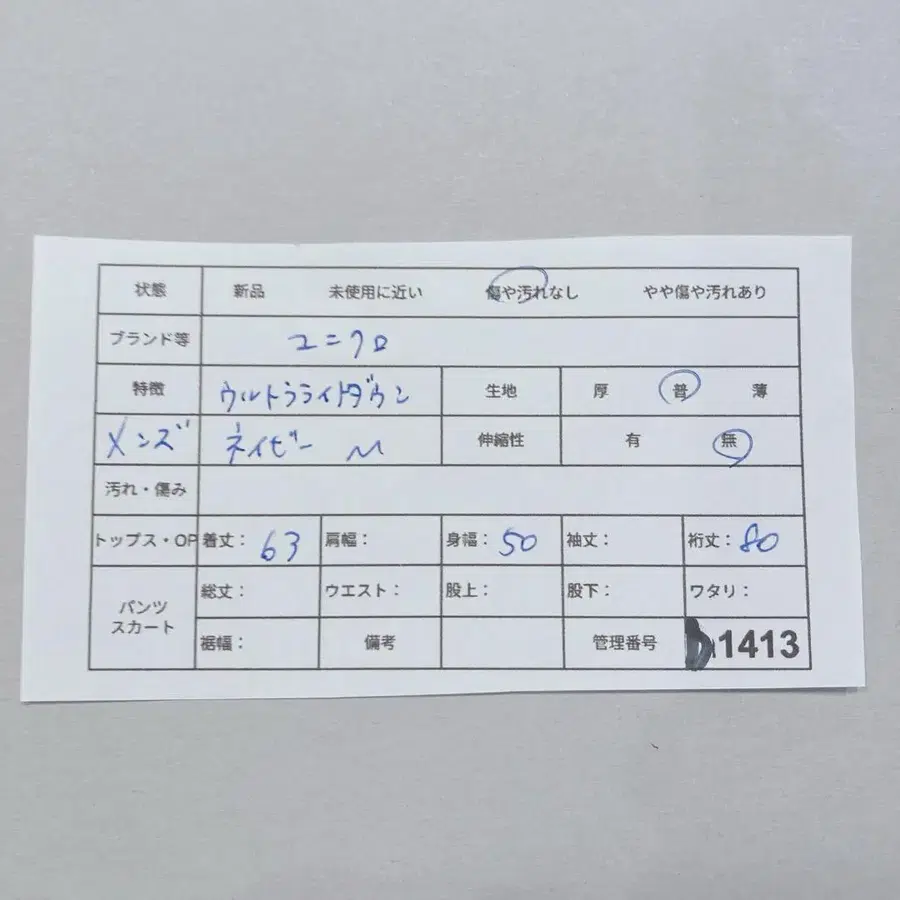 状態 新品 未使用に近い 傷や汚れなし やや傷や汚れあり
ブランド等 ユニクロ
特徴 ウルトラライトダウン 生地 厚 普 薄
メンズ ネイビー M 伸縮性 有 無
汚れ・傷み
トップス・OP 着丈： 63 肩幅： 身幅： 50 袖丈： 裄丈： 80
パンツ スカート 総丈： ウエスト： 股上： 股下： ワタリ：
裾幅： 備考 管理番号 1413